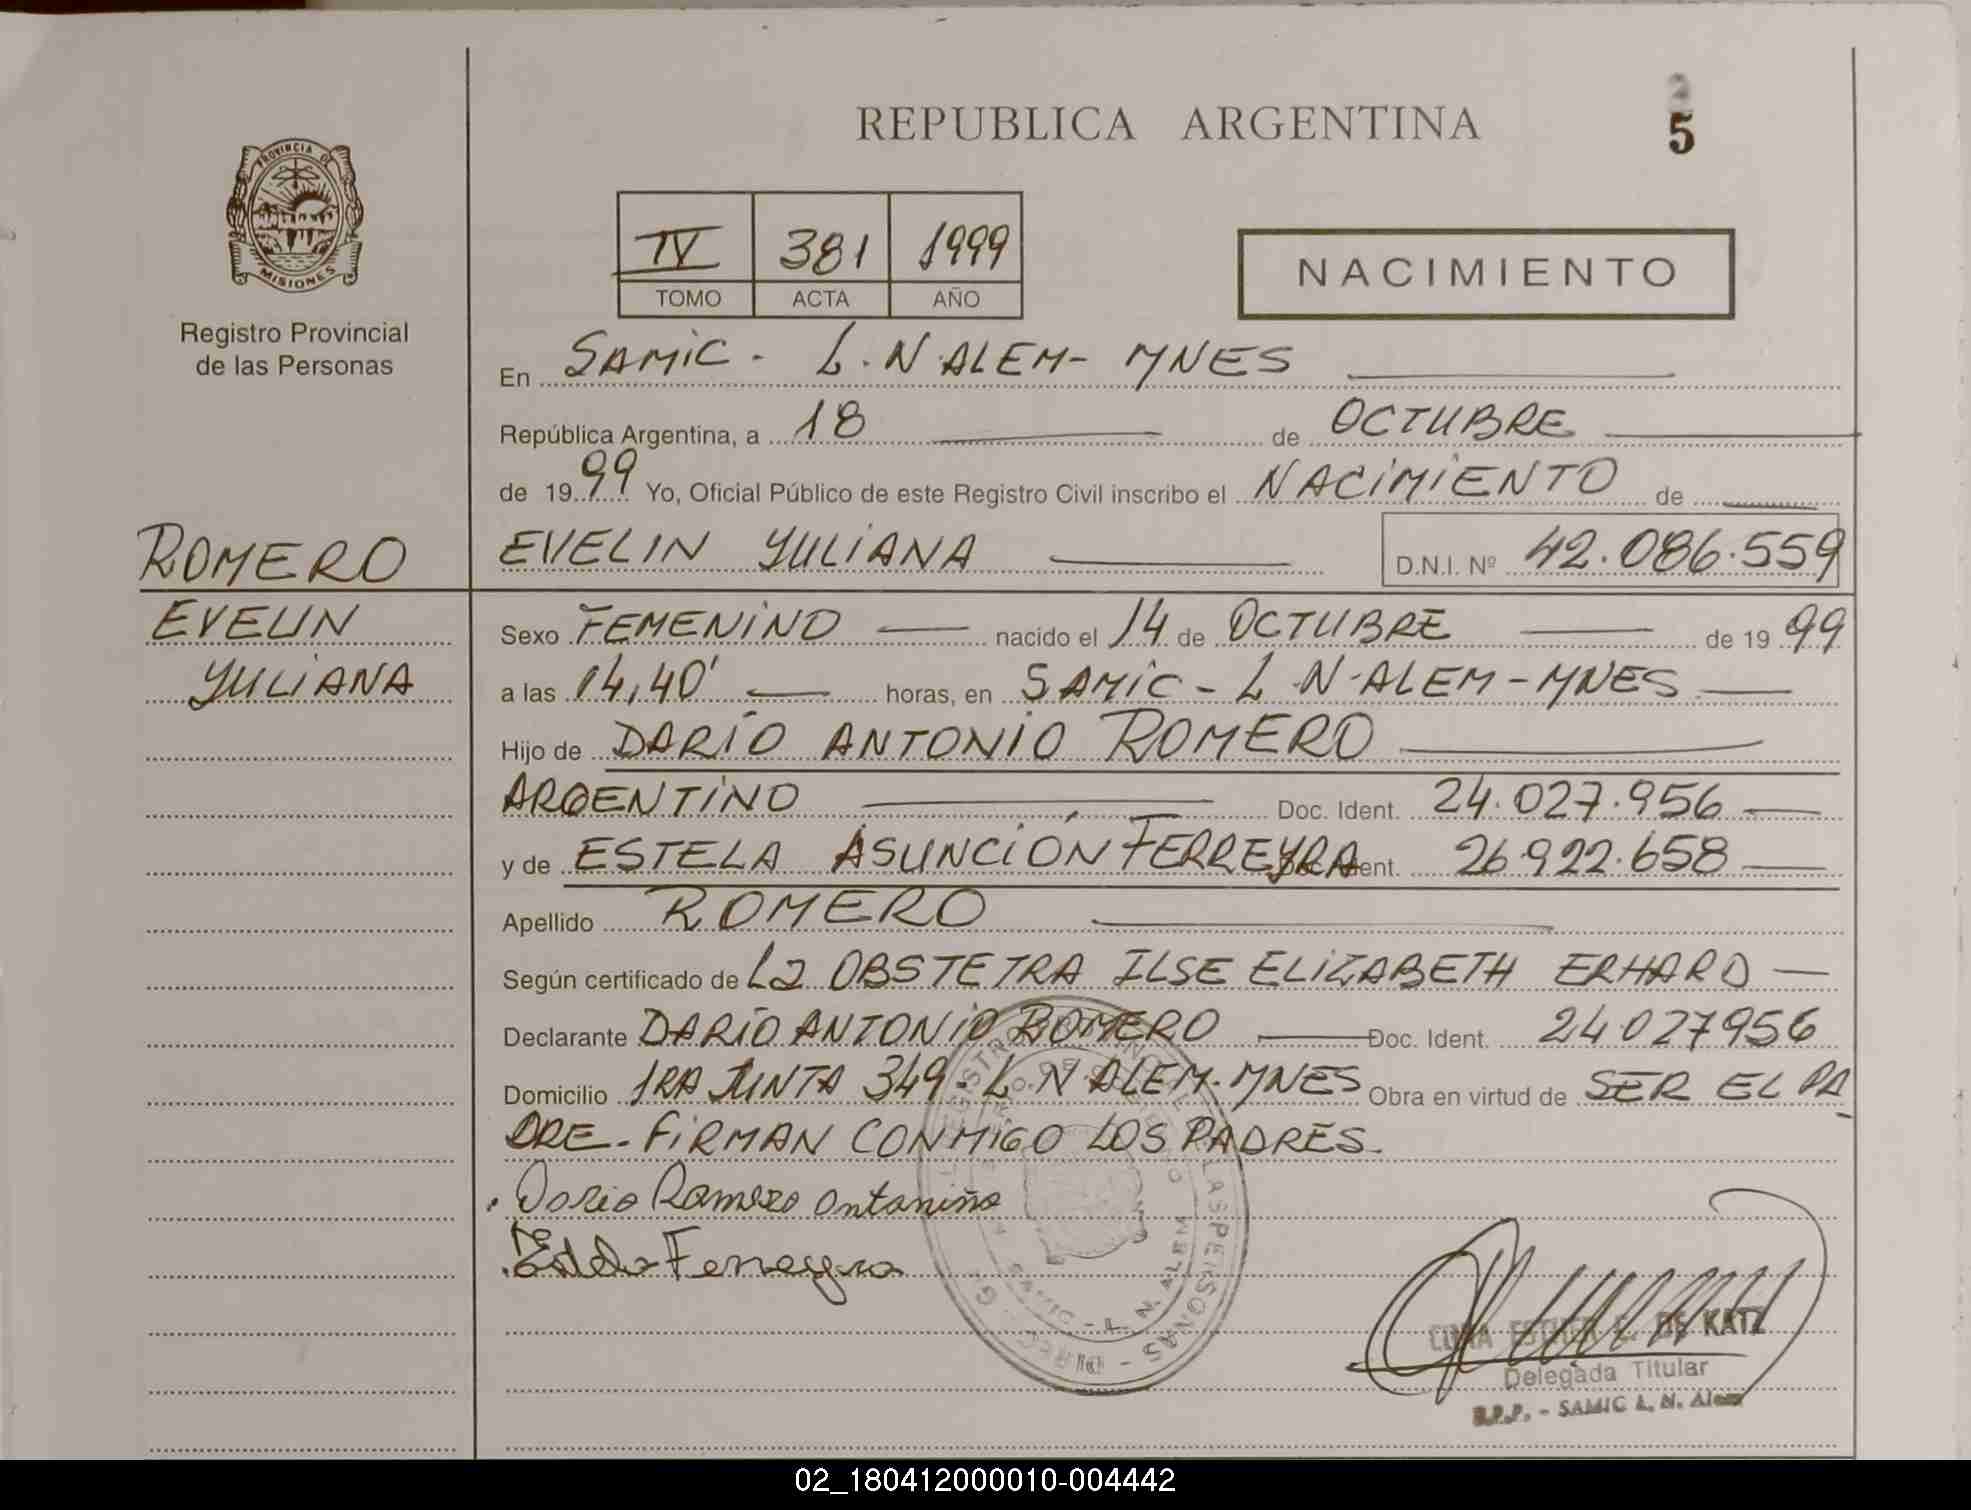 REPUBLICA ARGENTINA
5
PROVINCIA DE
MISIONES
Registro Provincial
de las Personas
IV 381 1999
TOMO ACTA AÑO
NACIMIENTO
En SAMIC - L. N. ALEM - MNES
República Argentina, a 18 de OCTUBRE
de 1999 Yo, Oficial Público de este Registro Civil inscribo el NACIMIENTO de
ROMERO
EVELIN YULIANA D.N.I. Nº 42.086.559
EVELIN
YULIANA
Sexo FEMENINO nacido el 14 de OCTUBRE de 1999
a las 14,40' horas, en SAMIC - L N. ALEM - MNES
Hijo de DARÍO ANTONIO ROMERO
ARGENTINO Doc. Ident. 24.027.956
y de ESTELA ASUNCIÓN FERREYRA Doc. Ident. 26.922.658
Apellido ROMERO
Según certificado de La OBSTETRA ILSE ELIZABETH ERHARD
Declarante DARÍO ANTONIO ROMERO Doc. Ident. 24027956
Domicilio 1RA JUNTA 349 - L N ALEM - MNES Obra en virtud de SER EL PA
DRE - FIRMAN CONMIGO LOS PADRES.
Romero
Ferreyra
DE KATZ
Delegada Titular
R.P.P. - SAMIC L. N. Alem
02_180412000010-004442